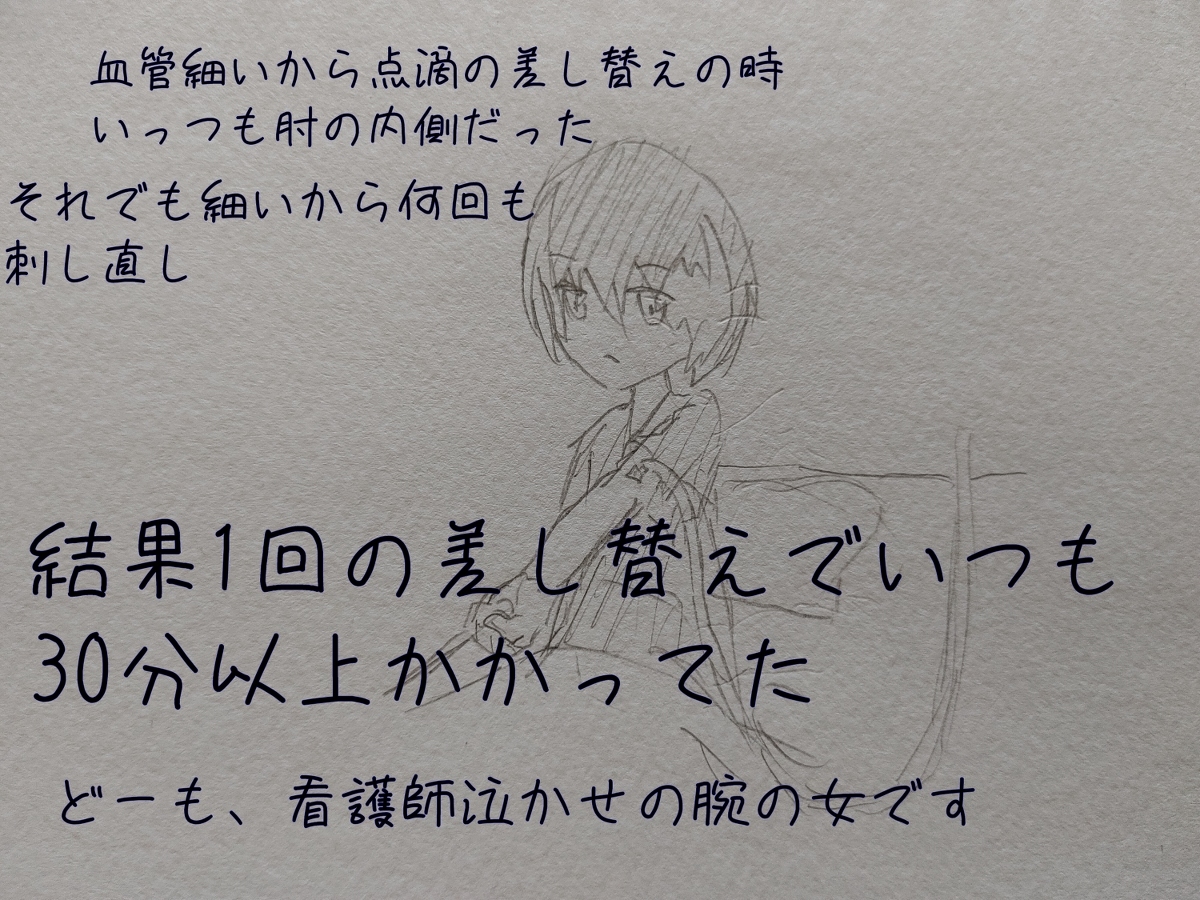 血管細いから点滴の差し替えの時
いっつも肘の内側だった
それでも細いから何回も
刺し直し
結果1回の差し替えでいつも
30分以上かかってた
どーも、看護師泣かせの腕の女です